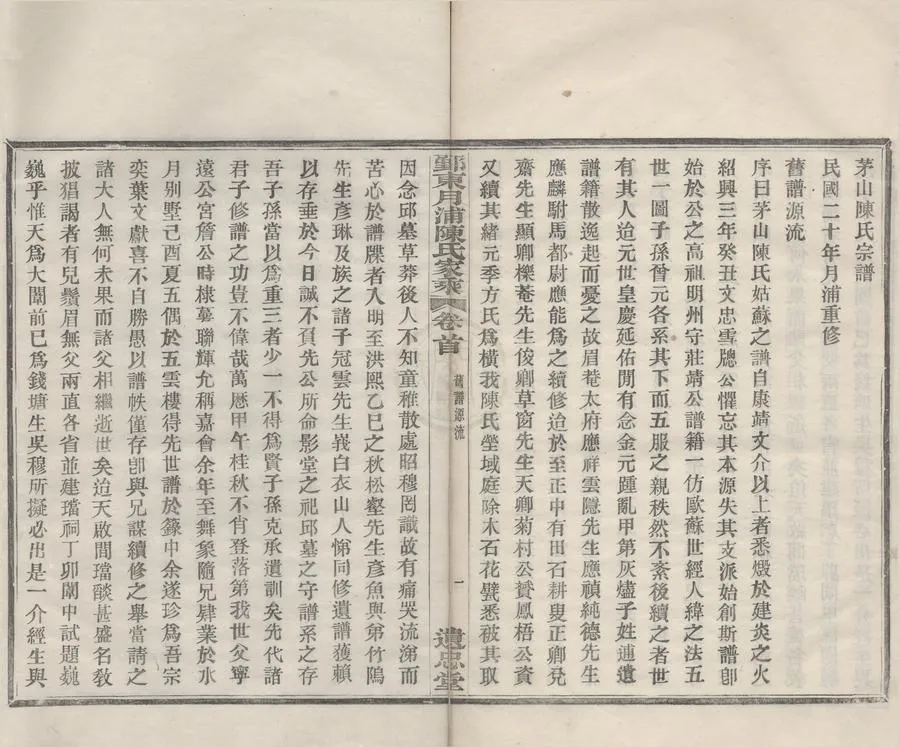 茅山陳氏宗譜
民國二十年月浦重修
舊譜源流
序曰茅山陳氏姑蘇之譜自康靖文介以上者悉燬於建炎之火
紹興三年癸丑文忠雪牕公懼忘其本源失其支派始創斯譜卽
始於公之高祖明州守莊靖公譜籍一仿歐蘇世經人緯之法五
世一圖子孫晉元各系其下而五服之親秩然不紊後續之者世
有其人迨元世皇慶延佑閒有念金元踵亂甲第灰燼子姓連遺
譜籍散逸起而憂之故眉菴太府應祥雲隱先生應禎純德先生
應麟駙馬都尉應能爲之續修迨於至正中有田石耕叟正卿兌
齋先生顯卿櫟菴先生俊卿草窗先生天卿菊村公贊鳳梧公資
又續其緒元季方氏爲橫我陳氏塋域庭除木石花甓悉被其取
鄞東月浦陳氏家乘 卷首 舊譜源流 一 遺忠堂
因念邱墓草莽後人不知童稚散處昭穆罔識故有痛哭流涕而
苦心於譜牒者入明至洪熙乙巳之秋松壑先生彥魚與弟竹隖
先生彥琳及族之諸子冠雲先生峩白衣山人悌同修遺譜獲賴
以存垂於今日誠不負先公所命影堂之祀邱墓之守譜系之存
吾子孫當以爲重三者少一不得爲賢子孫克承遺訓矣先代諸
君子修譜之功豈不偉哉萬曆甲午桂秋不肖登落第我世父寧
遠公宮詹公時棣萼聯輝允稱嘉會余年至舞象隨兄肄業於水
月別墅己酉夏五偶於五雲樓得先世譜於籙中余遂珍爲吾宗
奕葉文獻喜不自勝愚以譜帙僅存卽與兄謀續修之舉當請之
諸大人無何未果而諸父相繼逝世矣迨天啟閒璫燄甚盛名敎
披猖謁者有兒鬚眉無父兩直各省並建璫祠丁卯闈中試題巍
巍乎惟天爲大闈前已爲錢塘生吳穆所擬必出是一介經生與